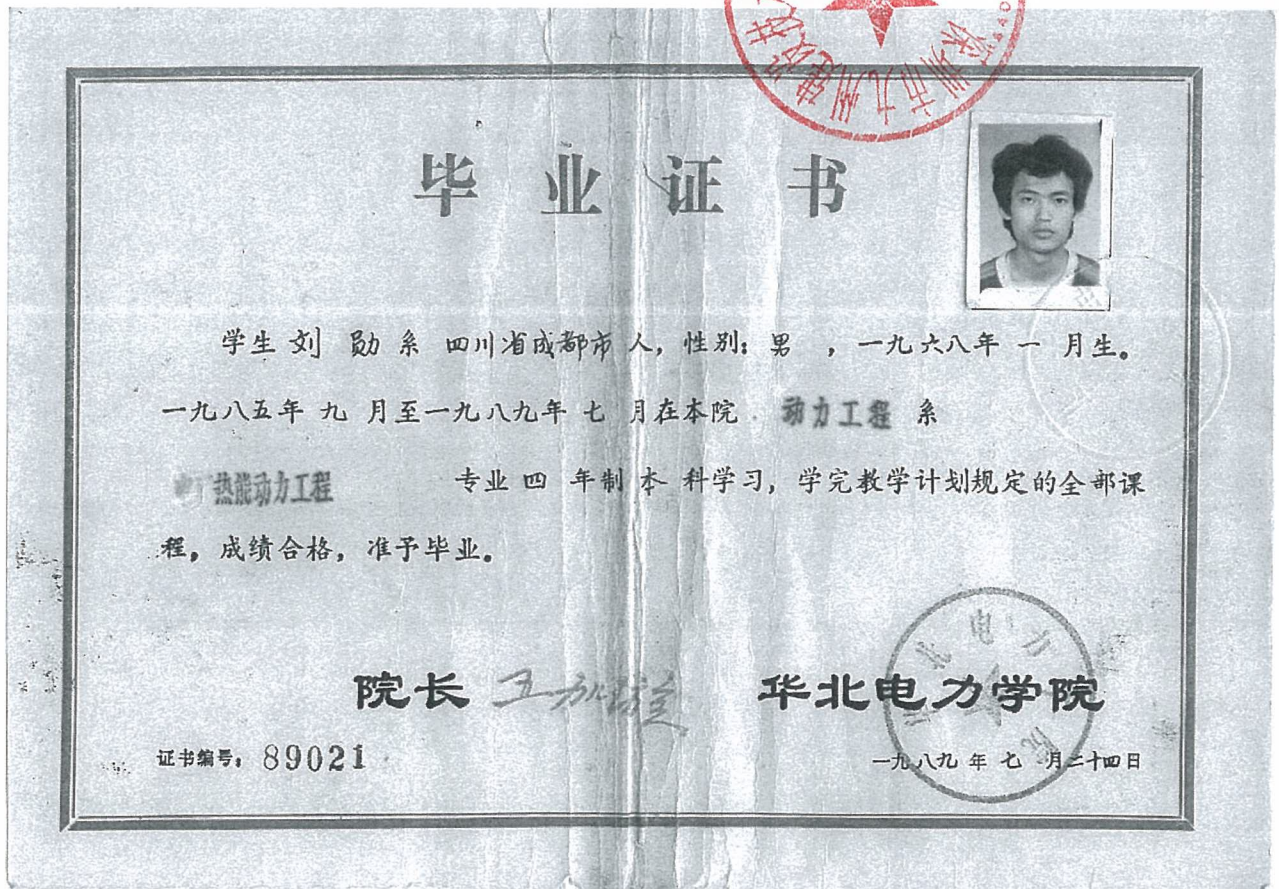 深圳市九州建设技
毕业证书
学生 刘 勋 系 四川省成都市 人，性别：男 ，一九六八年 一 月生。
一九八五年 九 月至一九八九年 七 月在本院 动力工程 系
热能动力工程 专业 四 年制 本 科学习，学完教学计划规定的全部课
程，成绩合格，准予毕业。
院长
华北电力学院
证书编号：89021
一九八九 年 七 月二十四日